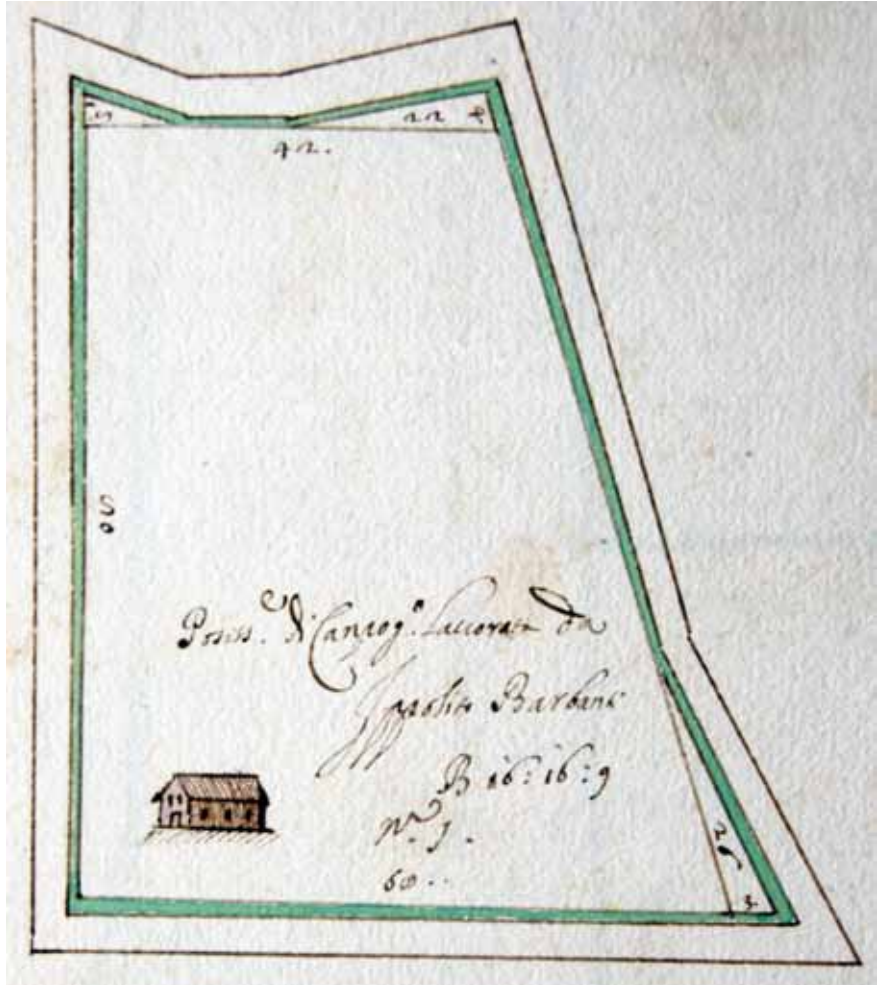 5 22 4
42.
80
Posess.e di Canzog.o Lauorata da
Ippolito Barbani
B 16: 16: 9
N.o 1.
68..
26
3